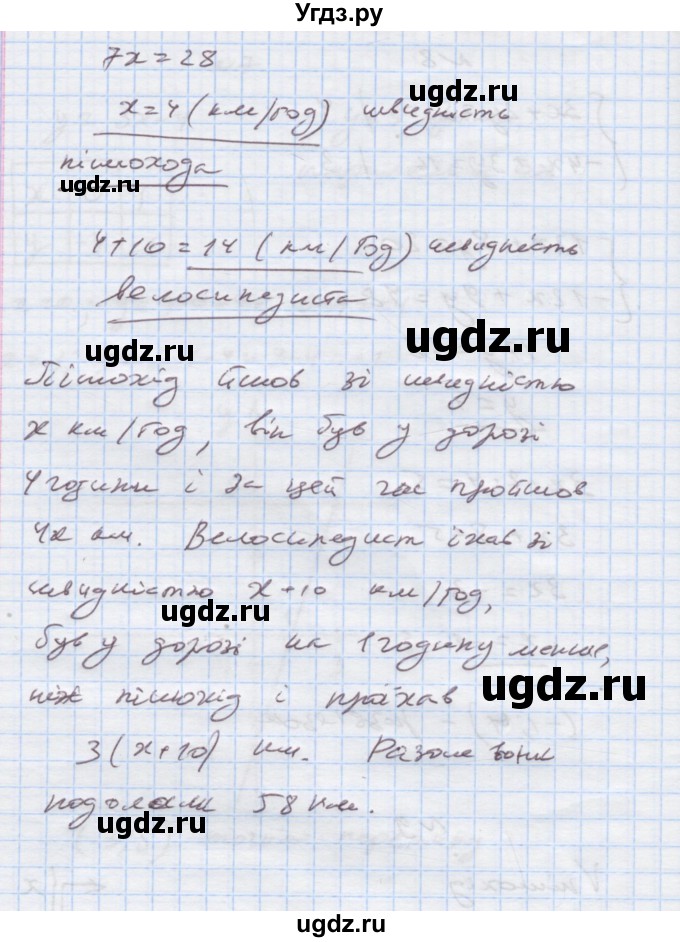 Угдз.ру
7x = 28
x = 4 (км/год) швидкість
пішохода
ugdz.ru
4+10 = 14 (км/Год) швидкість
велосипедиста
ugdz.ru
ugdz.ru
Пішохід йшов зі швидкістю
x км/год, він був у дорозі
4 години і за цей час пройшов
4x км. Велосипедист їхав зі
швидкістю x+10 км/год,
ugdz.ru
був у дорозі на 1 годину менше,
ніж пішохід і проїхав
ugdz.ru
3(x+10) км. Разом вони
подолали 58 км.
ugdz.ru
ugdz.ru